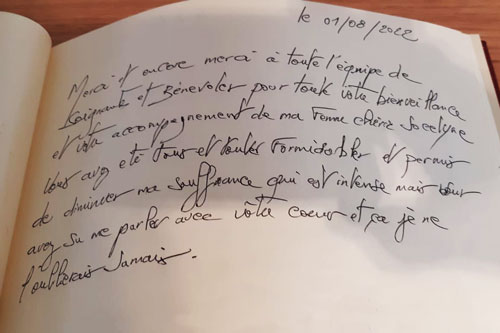 le 01/08/2022
Merci et encore merci à toute l'équipe de
Soignants et Bénévoles pour toute votre bienveillance
et votre accompagnement de ma Femme chérie Jocelyne
Vous avez été Tous et toutes Formidables et permis
de diminuer ma souffrance qui est intense mais vous
avez su me parler avec votre coeur et ça je ne
l'oublierais Jamais.